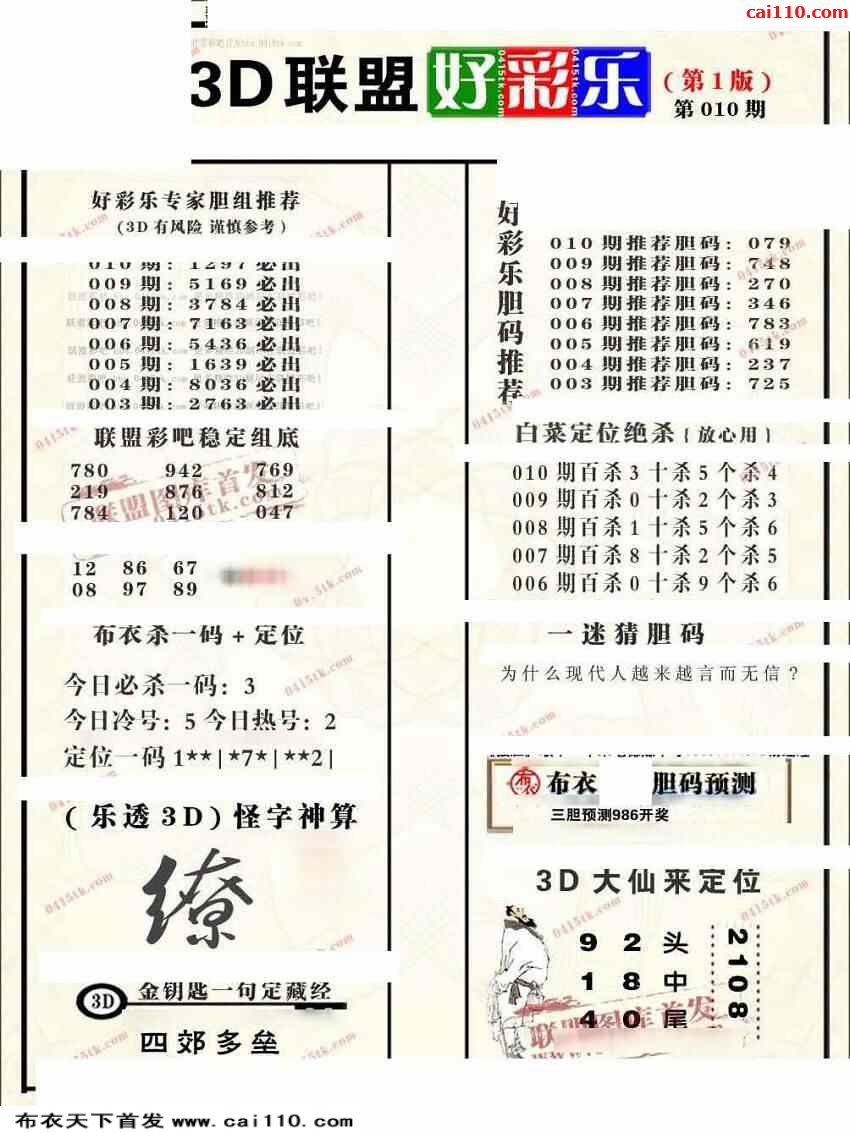 cai110.com
3D联盟好彩乐
(第1版)
第010期
好彩乐专家胆组推荐
(3D有风险 谨慎参考)
010期: 1297必出
009期: 5169必出
008期: 3784必出
007期: 7163必出
006期: 5436必出
005期: 1639必出
004期: 8036必出
003期: 2763必出
联盟彩吧稳定组底
780 942 769
219 876 812
784 120 047
12 86 67
08 97 89
布衣杀一码+定位
今日必杀一码: 3
今日冷号: 5 今日热号: 2
定位一码 1**|*7*|**2|
(乐透3D)怪字神算
缭
3D 金钥匙一句定藏经
四郊多垒
好彩乐胆码推荐
010期推荐胆码: 079
009期推荐胆码: 748
008期推荐胆码: 270
007期推荐胆码: 346
006期推荐胆码: 783
005期推荐胆码: 619
004期推荐胆码: 237
003期推荐胆码: 725
白菜定位绝杀{放心用}
010期百杀3十杀5个杀4
009期百杀0十杀2个杀3
008期百杀1十杀5个杀6
007期百杀8十杀2个杀5
006期百杀0十杀9个杀6
一迷猜胆码
为什么现代人越来越言而无信?
布衣 布衣 胆码预测
三胆预测986开奖
3D大仙来定位
9 2 头
1 8 中
4 0 尾
2108
联盟图库首发
布衣天下首发 www.cai110.com